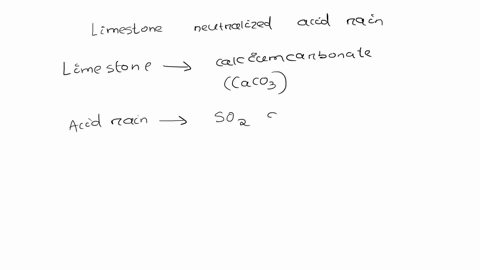 Limestone neutralized acid rain
Limestone → calcium carbonate
(CaCO3)
Acid rain → SO2